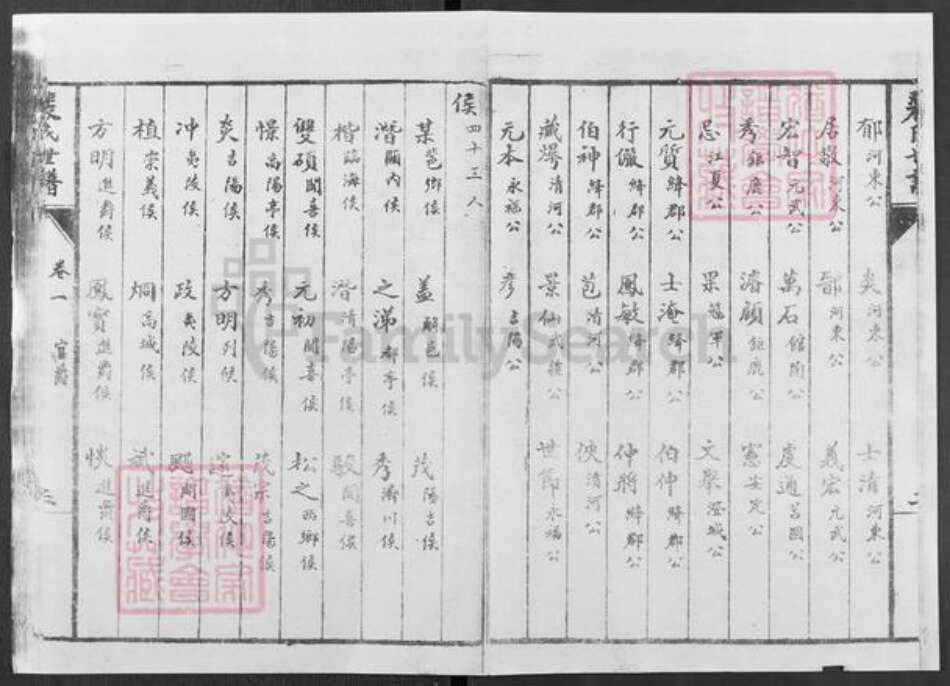 郁 河東公 炎 河東公 士清 河東公
居敬 河東公 鄑 河東公 義宏 元武公
宏智 元武公 萬石 館陶公 虔通 莒國公
秀 鉅鹿公 濬顧 鉅鹿公 憲 安定公
思 江夏公 杲 冠軍公 文舉 澄城公
元質 絳郡公 士淹 絳郡公 伯仲 絳郡公
行儼 絳郡公 鳳敏 絳郡公 仲將 絳郡公
伯神 絳郡公 苞 清河公 俠 清河公
藏 清河公 景仙 世節 永福公
元本 永福公 彥 吉陽公
侯 四十三人
某 邑鄉侯 蓋 解邑侯 茂 陽吉侯
潛 關內侯 之 都亭侯 秀 濟川侯
楷 臨海侯 潛 清陽亭侯 駿 聞喜侯
雙碩 聞喜侯 元初 聞喜侯 松之 西鄉侯
憬 高陽亭侯 秀 吉陽侯 茂宗 吉陽侯
炎 吉陽侯 方明 列侯
冲 夷陵侯 政 夷陵侯 颺 開國侯
植 崇義侯 烱 高城侯 斌 進爵侯
方明 進爵侯 鳳寶 進爵侯 惔 進爵侯
裴氏世譜 卷一 官爵
FamilySearch